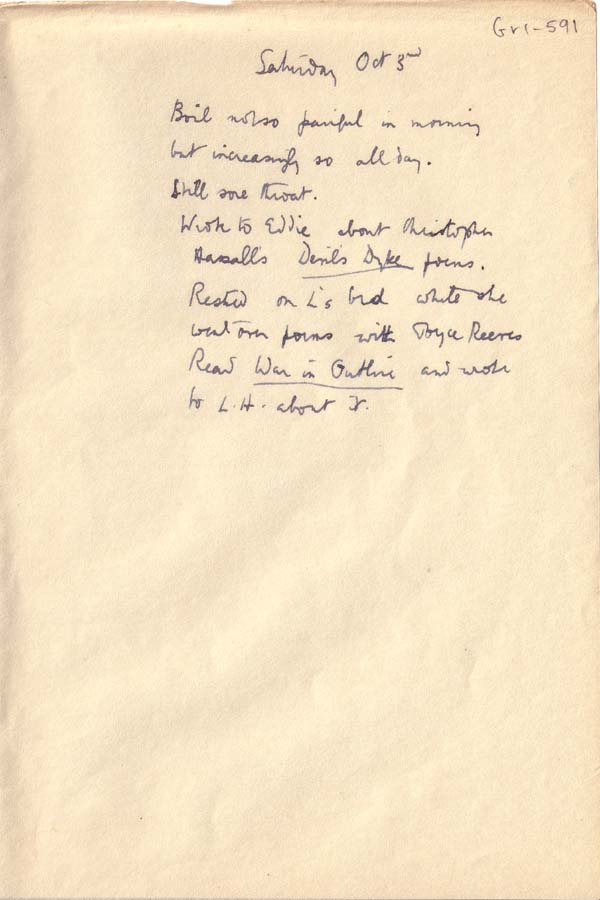 Gr1-591
Saturday Oct 3rd
Boil not so painful in morning
but increasingly so all day.
Still sore throat.
Wrote to Eddie about Christopher
Hassall's Devil's Dyke poems.
Rested on L's bed while she
went over poems with Joyce Reeves
Read War in Outline and wrote
to L.H. about it.